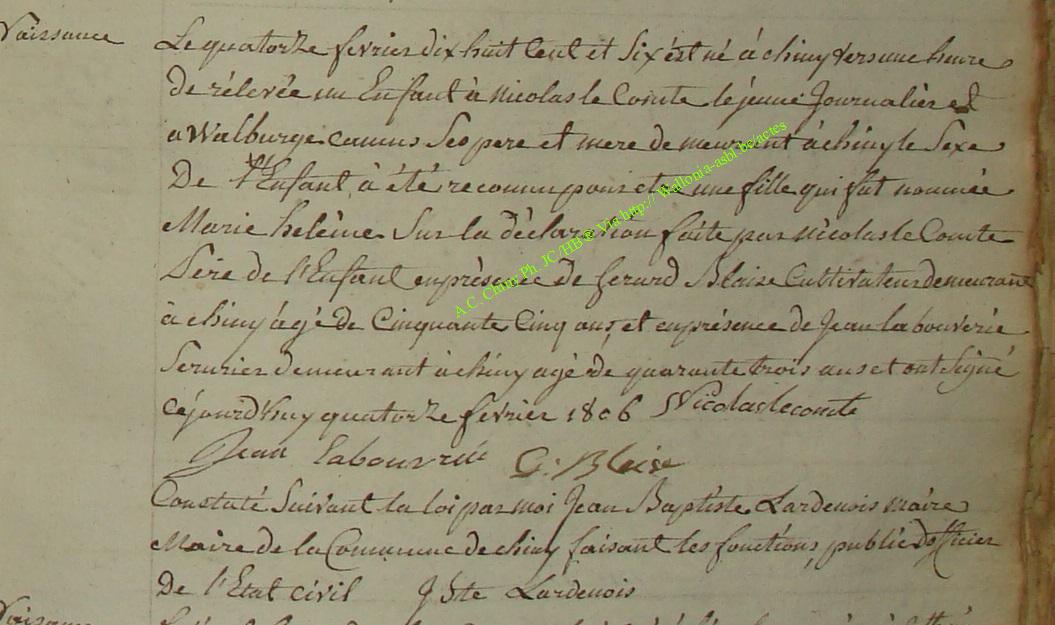 Naissance
Le quatorze fevrier dix huit Cent et Six est né à chiny vers une heure
de rélevée un Enfant à nicolas le Comte le jeune Journalier et
a Walburge camus Ses pere et mere demeurant à chiny le Sexe
De l'Enfant à été reconnu pour etre une fille qui fut nommée
Marie heleine Sur la déclaration faite par nicolas le Comte
Père de l'Enfant en présence de Gerard Blaise Cultivateur demeurant
à chiny âgé de Cinquante Cinq ans, et en présence de Jean labouverie
Serurier demeurant à chiny agé de quarante trois ans et ont Signé
Cejourdhuy quatorze fevrier 1806 Nicolas lecomte
Jean Labouvrie G: Blaise
Constaté Suivant la loi par moi Jean Baptiste Lardenois maire
Maire de la Commune de chiny faisant les fonctions public d'officier
De l'Etat civil J Bte Lardenois
Naissance
A.C. Chiny Ph. JC /HB@ Via http:// Wallonia-asbl.be/actes